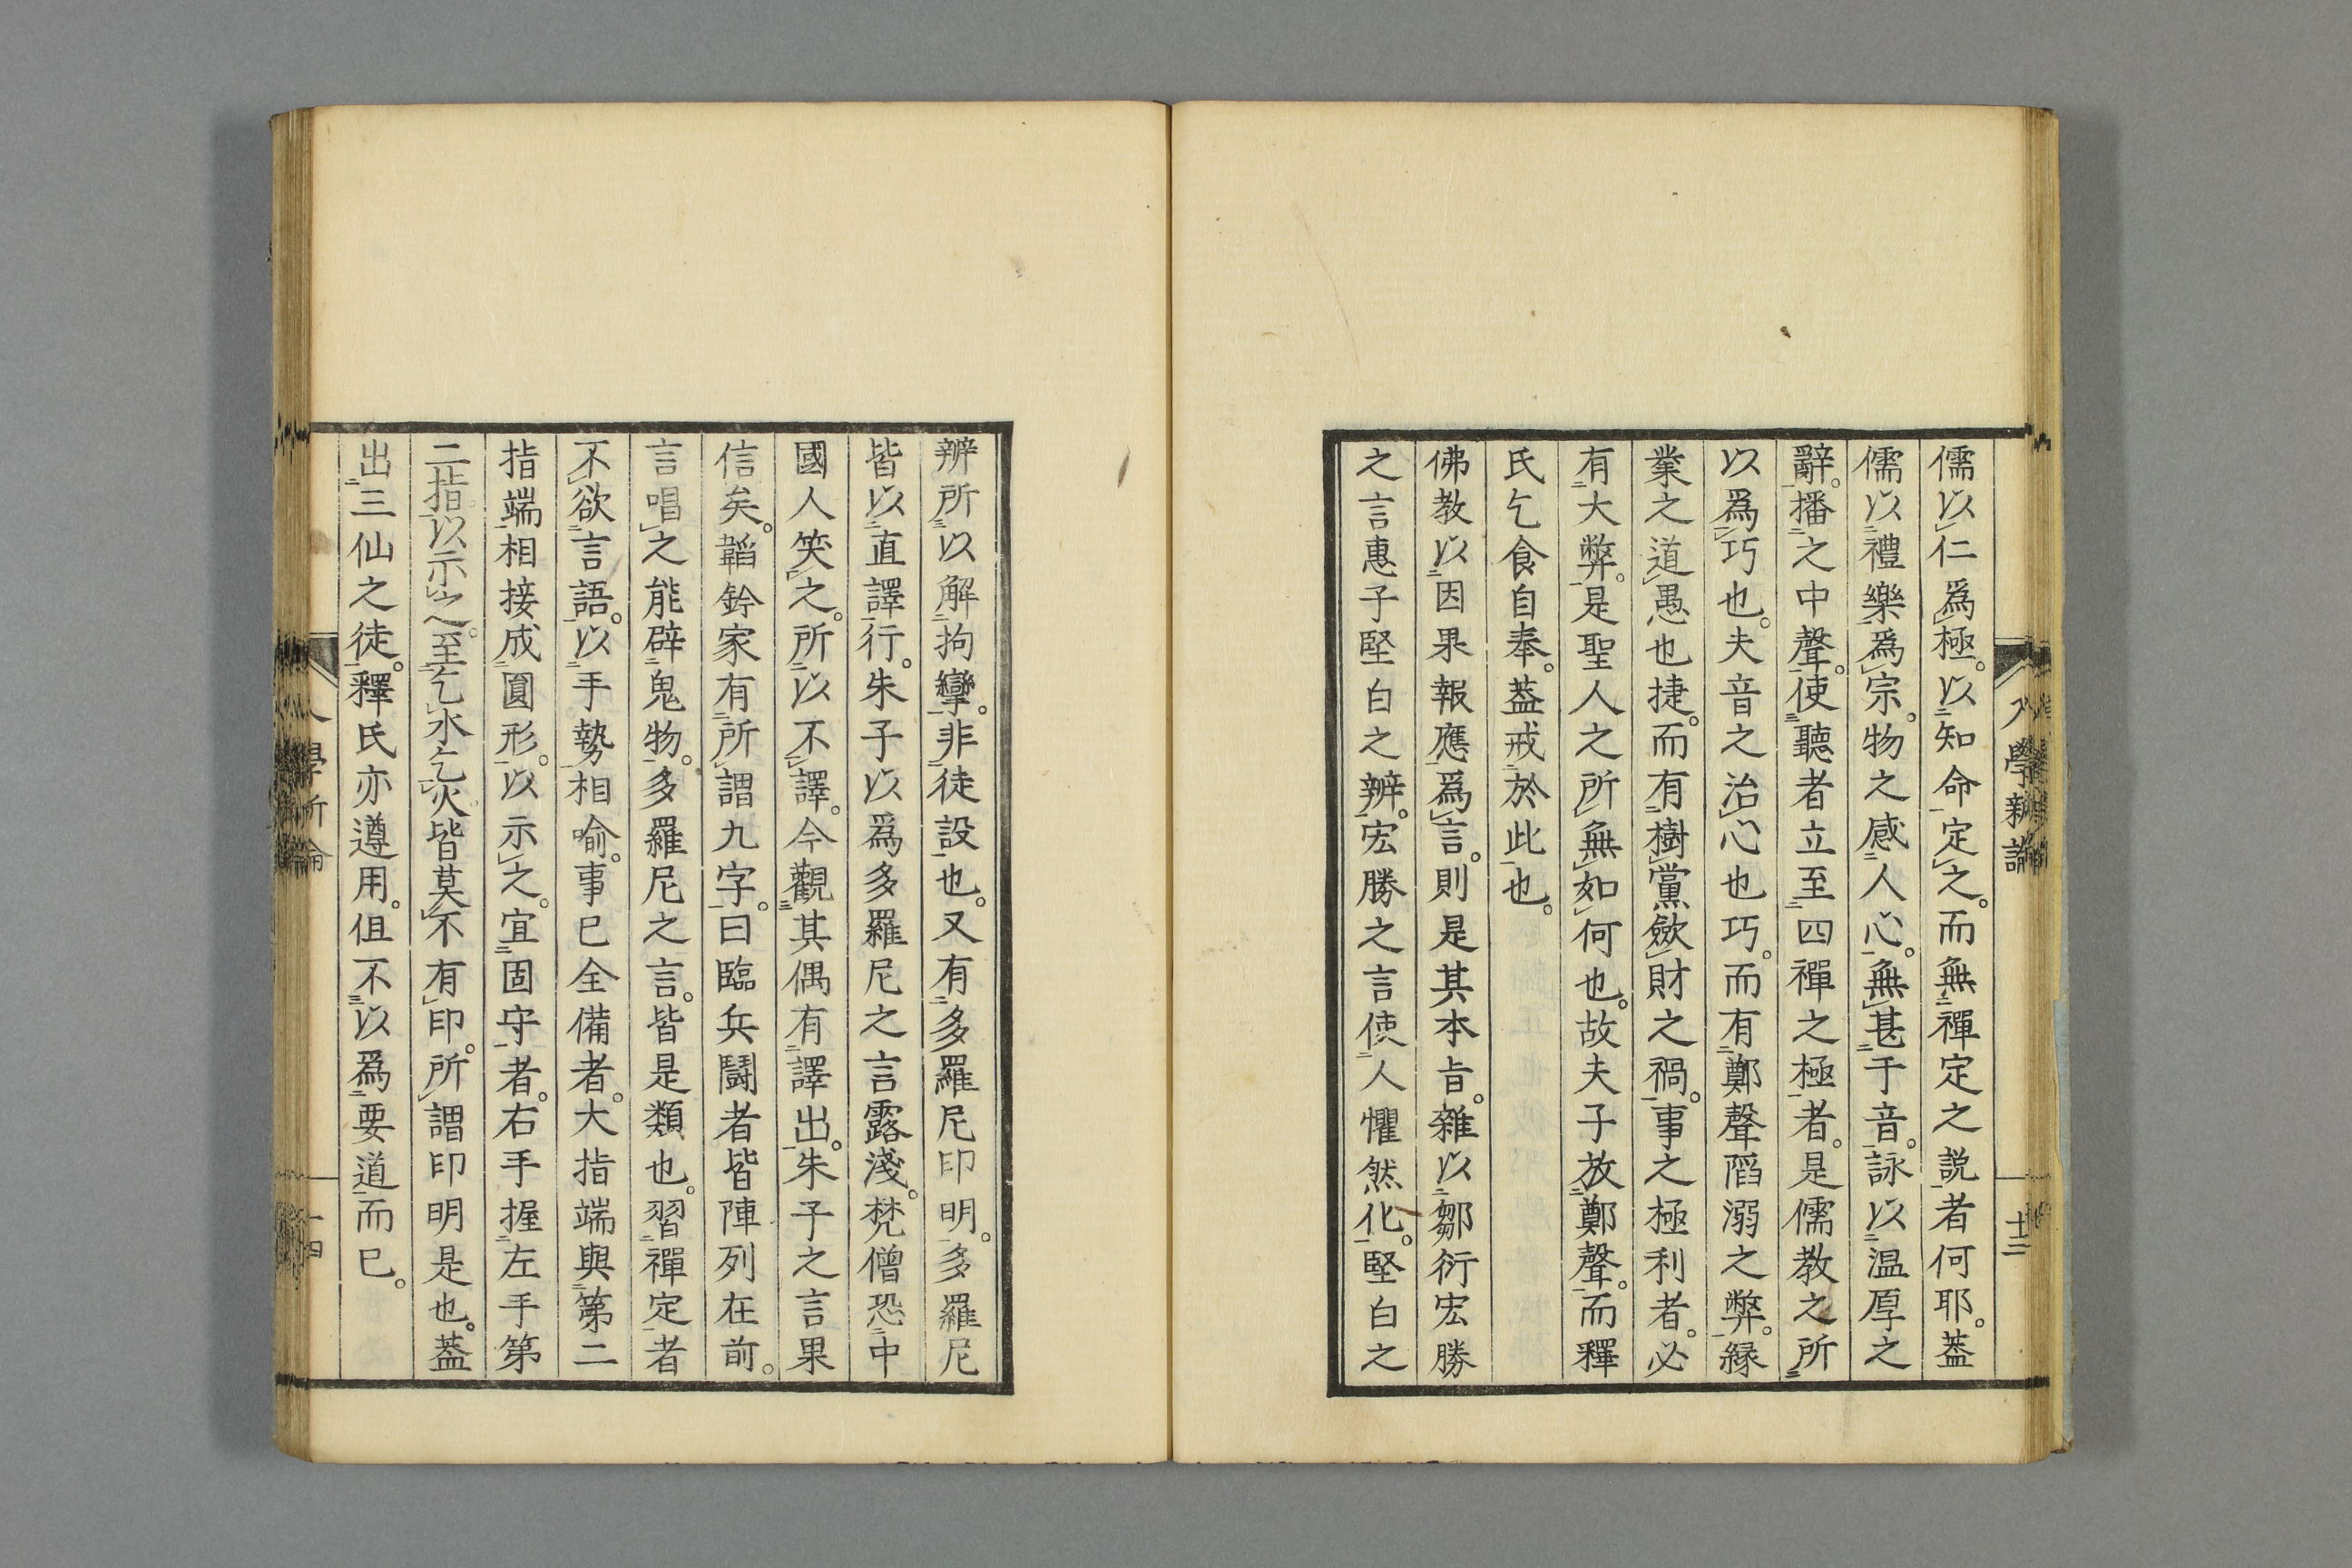 儒以仁爲極。以知命定之。而無禪定之説者何耶。葢
儒以禮樂爲宗。物之感人心。無甚于音。詠以温厚之
辭。播之中聲。使聽者立至四禪之極者。是儒教之所
以爲巧也。夫音之治心也巧。而有鄭聲陷溺之弊。縁
業之道愚也捷。而有樹黨斂財之禍。事之極利者。必
有大弊。是聖人之所無如何也。故夫子放鄭聲。而釋
氏乞食自奉。葢戒於此也。
佛教以因果報應爲言。則是其本旨。雜以鄒衍宏勝
之言惠子堅白之辨。宏勝之言使人懼然化。堅白之
十三
辨所以解拘攣。非徒設也。又有多羅尼印明。多羅尼
皆以直譯行。朱子以爲多羅尼之言露淺。梵僧恐中
國人笑之。所以不譯。今觀其偶有譯出。朱子之言果
信矣。韜鈐家有所謂九字。曰臨兵鬪者皆陣列在前。
言唱之能辟鬼物。多羅尼之言。皆是類也。習禪定者
不欲言語。以手勢相喻。事已全備者。大指端與第二
指端相接成圓形。以示之。宜固守者。右手握左手第
二指以示之。至乞水乞火皆莫不有印。所謂印明是也。葢
出三仙之徒。釋氏亦遵用。但不以爲要道而已。